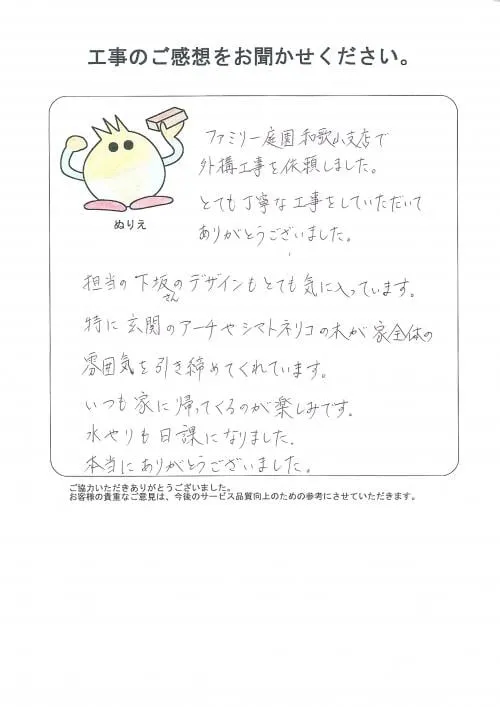 工事のご感想をお聞かせください。
ファミリー庭園 和歌山支店で
外構工事を依頼しました。
とても丁寧な工事をしていただいて
ありがとうございました。
ぬりえ
担当の下坂さんのデザインもとても気に入っています。
特に玄関のアーチやシマトネリコの木が家全体の
雰囲気を引き締めてくれています。
いつも家に帰ってくるのが楽しみです。
水やりも日課になりました.
本当にありがとうございました。
ご協力いただきありがとうございました。
お客様の貴重なご意見は、今後のサービス品質向上のための参考にさせていただきます。